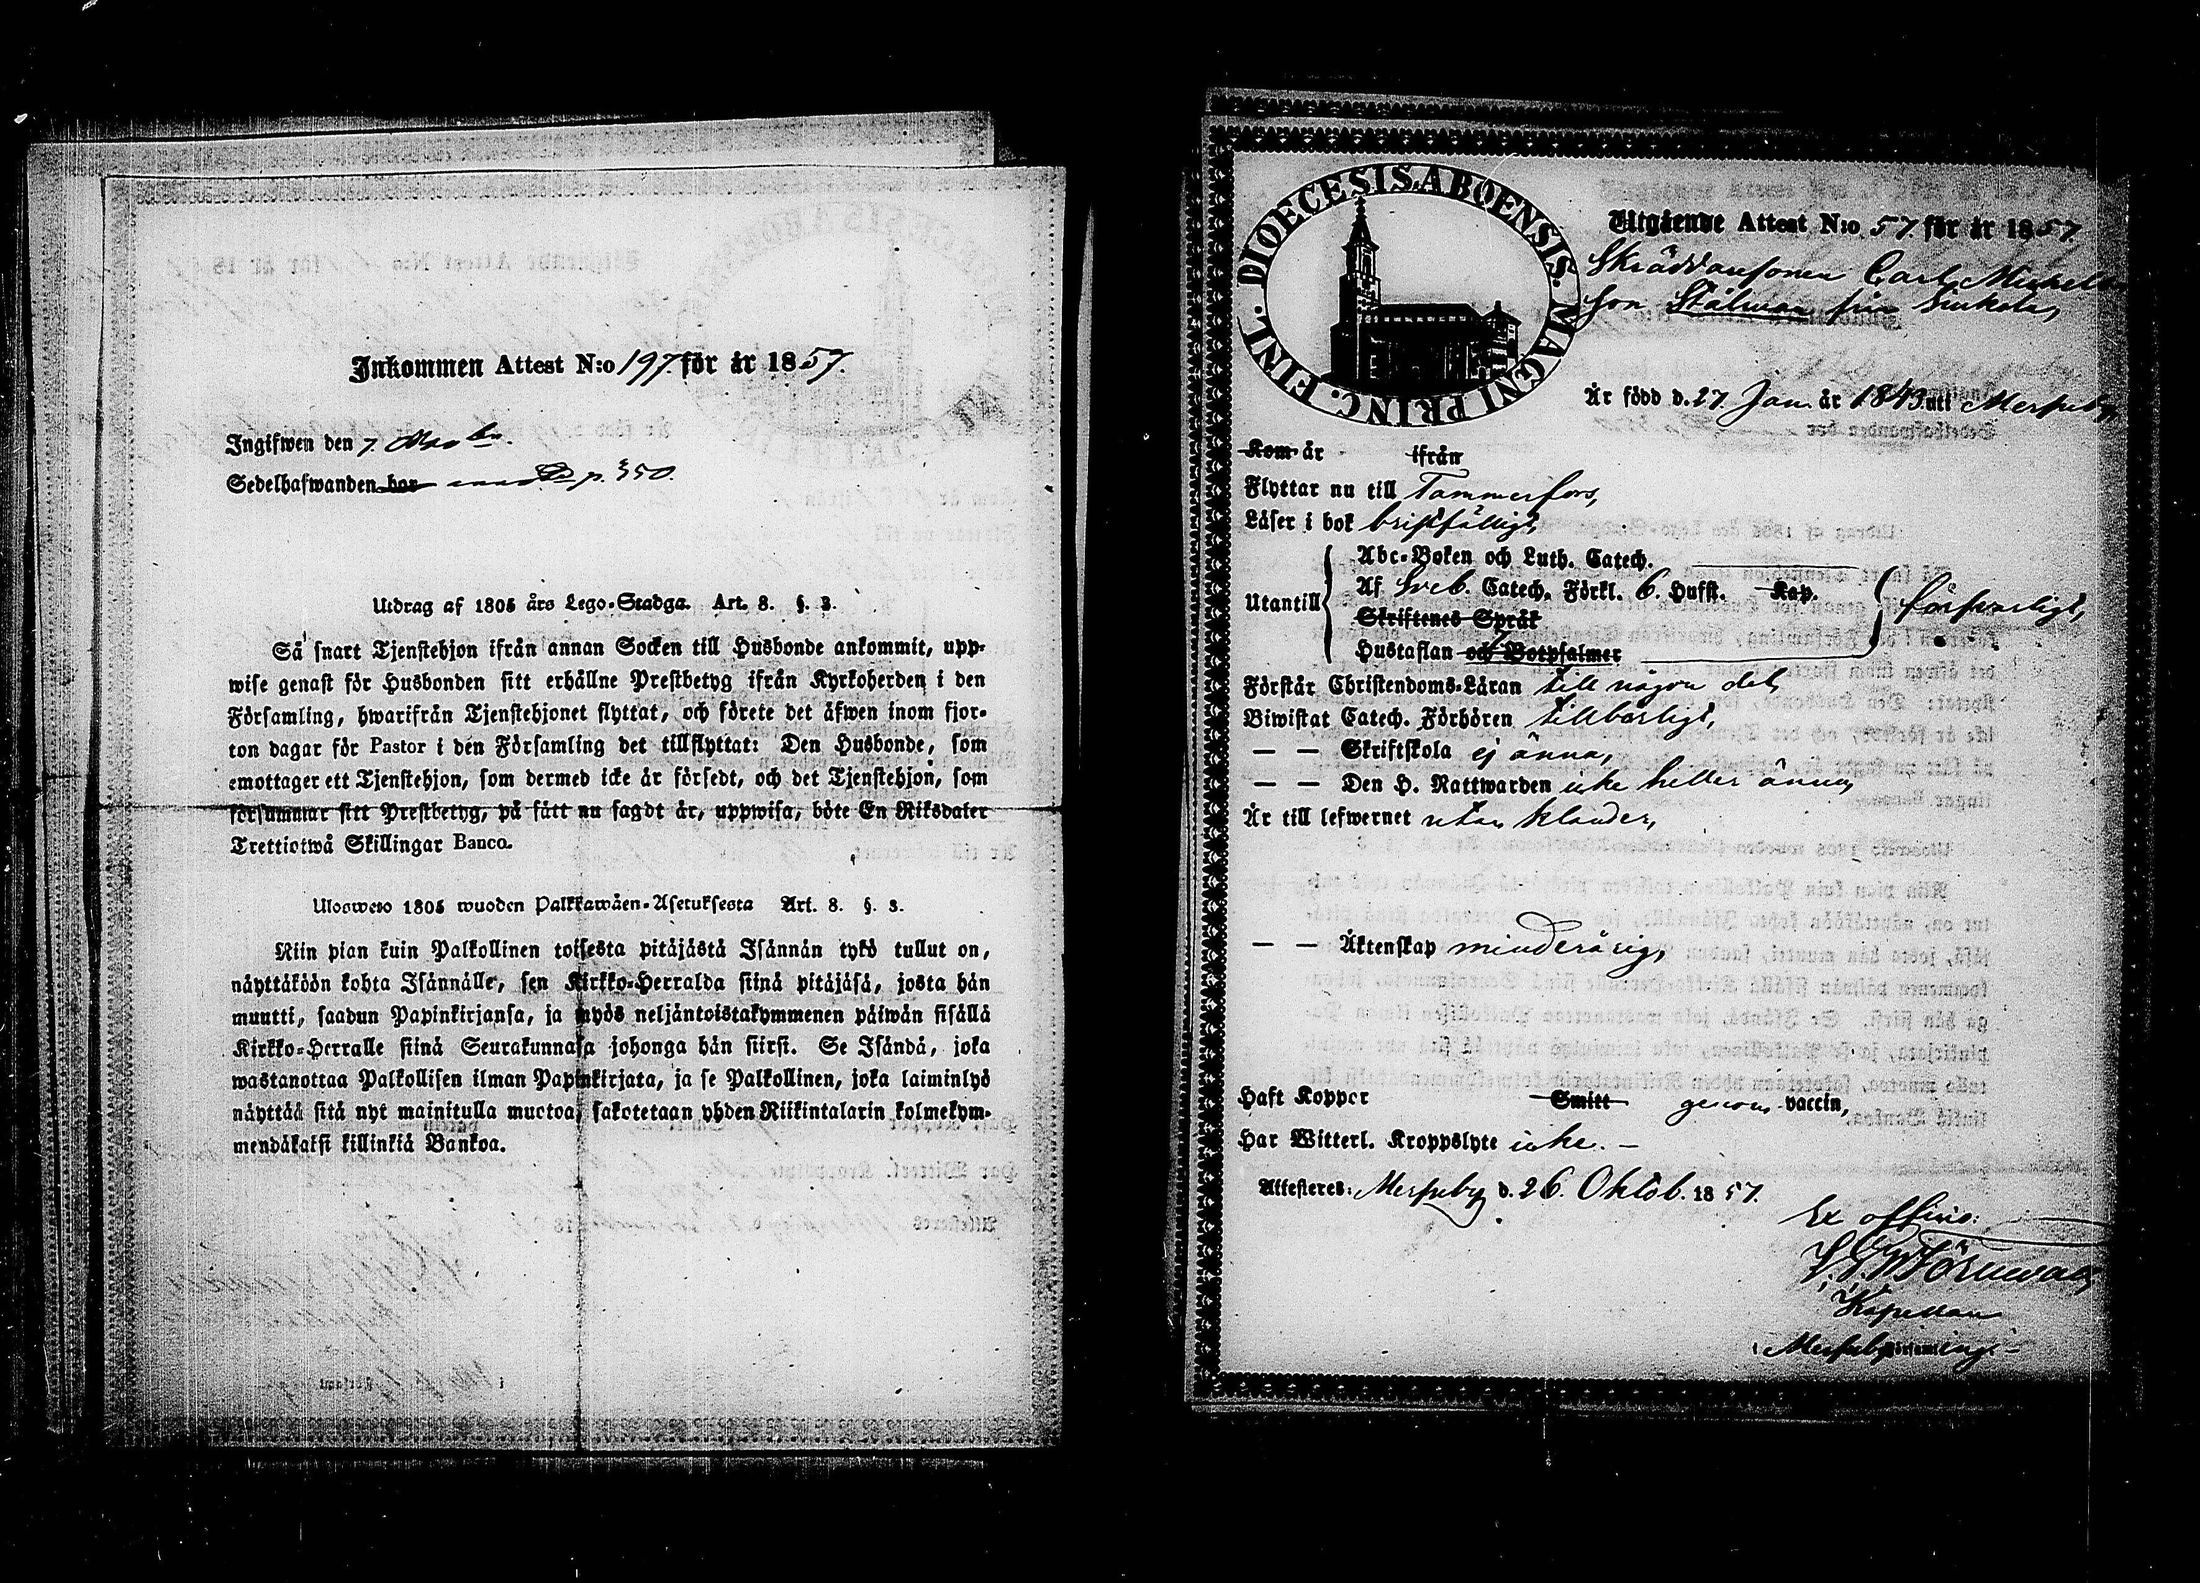 Inkommen Attest N:o 197 för år 1857.
Ingifwen den 7.
Sedelhafwanden bor p. 350.
Utdrag af 1805 års Lego-Stadga. Art. 8. §. 3.
Så snart Tjenstehjon ifrån annan Socken till Husbonde ankommit, upp-
wise genast för Husbonden sitt erhållne Prestbetyg ifrån Kyrkoherden i den
Församling, hwarifrån Tjenstehjonet flyttat, och förete det äfwen inom fjor-
ton dagar för Pastor i den Församling det tillflyttat: Den Husbonde, som
emottager ett Tjenstehjon, som dermed icke är försedt, och det Tjenstehjon, som
försummar sitt Prestbetyg, på sätt nu sagdt är, uppwisa, böte En Riksdaler
Trettiotwå Skillingar Banco.
Ulosweto 1805 wuoden Palkkawäen-Asetuksesta Art. 8. §. 3.
Niin pian kuin Palkollinen toisesta pitäjästä Isännän tykö tullut on,
näyttäköön kohta Isännälle, sen Kirkko-Herralda siinä pitäjäsä, josta hän
muutti, saadun Papinkirjansa, ja myös neljäntoistakymmenen päiwän sisällä
Kirkko-Herralle siinä Seurakunnasa johonga hän siirsi. Se Isändä, joka
wastanottaa Palkollisen ilman Papinkirjata, ja se Palkollinen, joka laiminlyö
näyttää sitä nyt mainitulla muotoa, sakotetaan yhden Riikintalarin kolmekym-
mendäkaksi killinkiä Bankoa.
DIOECESIS ABOENSIS. MAGNI PRINC. FINL.
Utgående Attest N:o 57. för år 1857.
Skräddaresonen Carl Michels
son Stålman från
Är född d. 27 Jan. år 1843 uti Merjuby,
Kom år ifrån
Flyttar nu till Tammerfors,
Läser i bok bristfälligt,
Utantill
Abc-Boken och Luth. Catech.
Af Sveb. Catech. Förkl. 6. Hufst. Kap.
försvarligt,
Skriftenes Språk
Hustaflan och Botpsalmer
Förstår Christendoms-Läran till någon del,
Biwistat Catech. Förhören tillbörligt,
— — Skriftskola ej ännu,
— — Den H. Nattwarden icke heller ännu,
Är till lefwernet utan klander,
— — Äktenskap minderårig,
Haft Koppor Smitt genom vaccin,
Har Witterl. Kroppslyte icke. —
Attesteres: Merjuby d. 26. Oktob. 1857.
Ex officio:
Kapellan
i Merjuby Församling. —